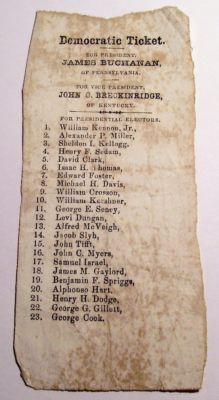 Democratic Ticket.
FOR PRESIDENT,
JAMES BUCHANAN,
OF PENNSYLVANIA.
FOR VICE PRESIDENT,
JOHN C. BRECKINRIDGE,
OF KENTUCKY.
FOR PRESIDENTIAL ELECTORS.
1. William Kennon, Jr.,
2. Alexander P. Miller,
3. Sheldon I. Kellogg,
4. Henry F. Sedam,
5. David Clark,
6. Isaac H. Thomas,
7. Edward Foster,
8. Michael H. Davis,
9. William Crosson,
10. William Kershner,
11. George E. Seney,
12. Levi Dungan,
13. Alfred McVeigh,
14. Jacob Slyh,
15. John Tifft,
16. John C. Myers,
17. Samuel Israel,
18. James M. Gaylord,
19. Benjamin F. Spriggs,
20. Alphonso Hart,
21. Henry H. Dodge,
22. George G. Gillett,
23. George Cook.